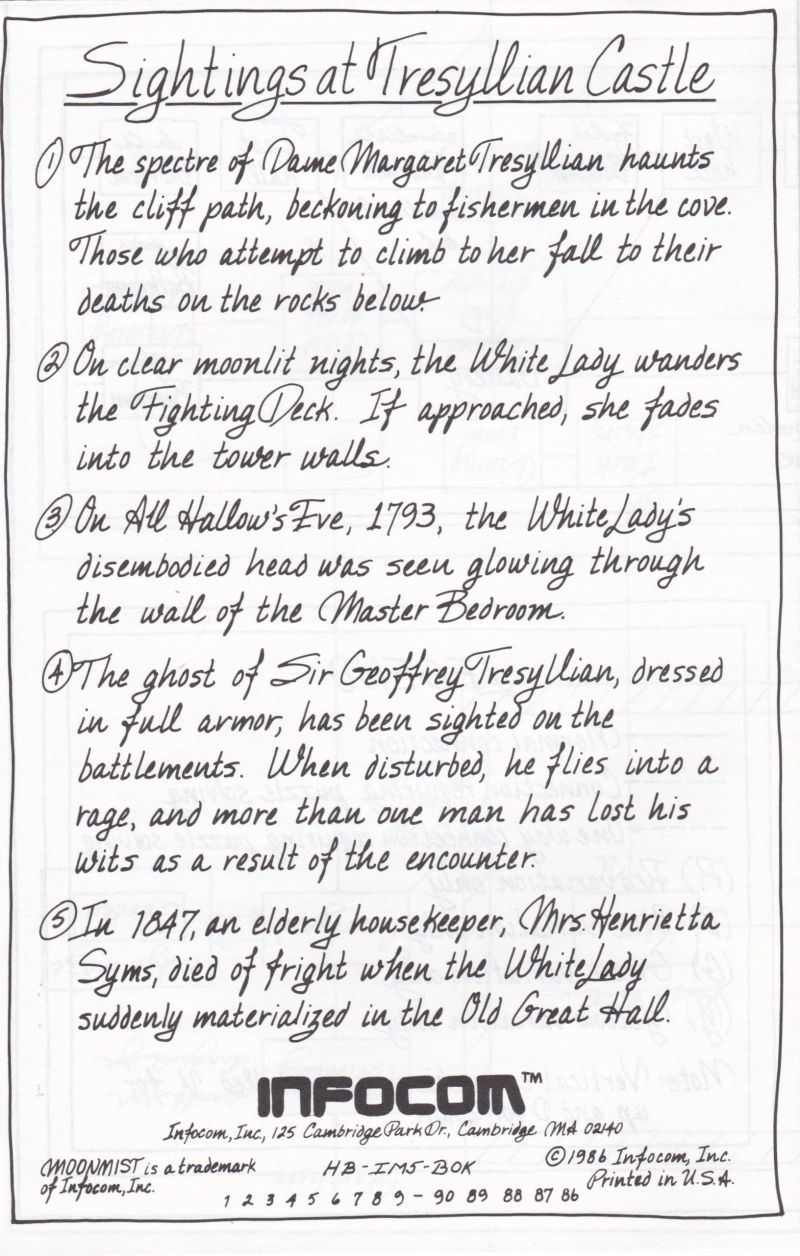 Sightings at Tresyllian Castle
① The spectre of Dame Margaret Tresyllian haunts
the cliff path, beckoning to fishermen in the cove.
Those who attempt to climb to her fall to their
deaths on the rocks below.
② On clear moonlit nights, the White Lady wanders
the Fighting Deck. If approached, she fades
into the tower walls.
③ On All Hallow's Eve, 1793, the White Lady's
disembodied head was seen glowing through
the wall of the Master Bedroom.
④ The ghost of Sir Geoffrey Tresyllian, dressed
in full armor, has been sighted on the
battlements. When disturbed, he flies into a
rage, and more than one man has lost his
wits as a result of the encounter.
⑤ In 1847, an elderly housekeeper, Mrs. Henrietta
Syms, died of fright when the White Lady
suddenly materialized in the Old Great Hall.
INFOCOM™
Infocom, Inc., 125 CambridgePark Dr., Cambridge MA 02140
MOONMIST is a trademark
of Infocom, Inc.
HB-IM5-BOK
©1986 Infocom, Inc.
Printed in U.S.A.
1 2 3 4 5 6 7 8 9 - 90 89 88 87 86